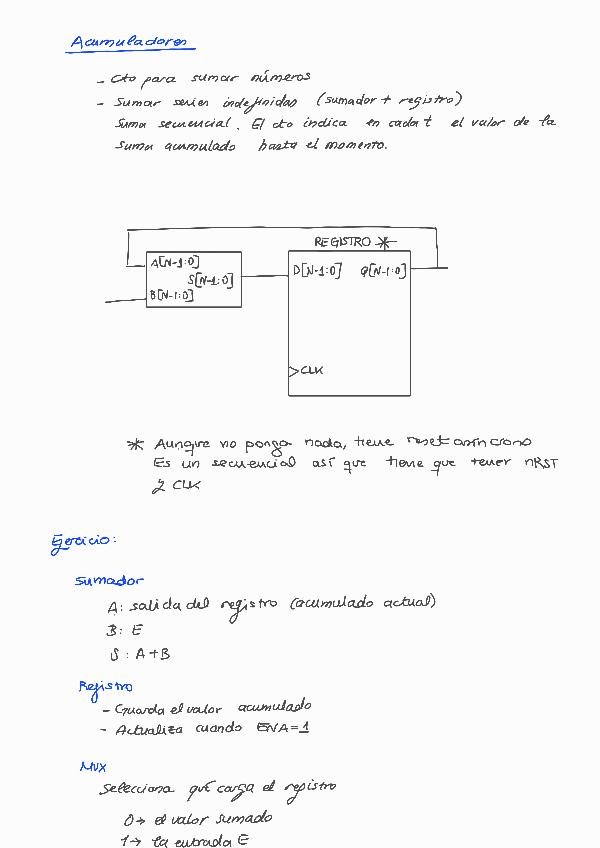 Acumuladores
- Cto para sumar números
- Sumar series indefinidas (sumador + registro)
Suma secuencial. El cto indica en cada t el valor de la
suma acumulado hasta el momento.
REGISTRO *
A[N-1:0]
S[N-1:0]
B[N-1:0]
D[N-1:0] Q[N-1:0]
CLK
* Aunque no ponga nada, tiene reset asíncrono
Es un secuencial así que tiene que tener nRST
y CLK
Ejercicio:
Sumador
A: salida del registro (acumulado actual)
B: E
S: A+B
Registro
- Guarda el valor acumulado
- Actualiza cuando ENA=1
MUX
Selecciona qué carga el registro
0→ el valor sumado
1→ la entrada E